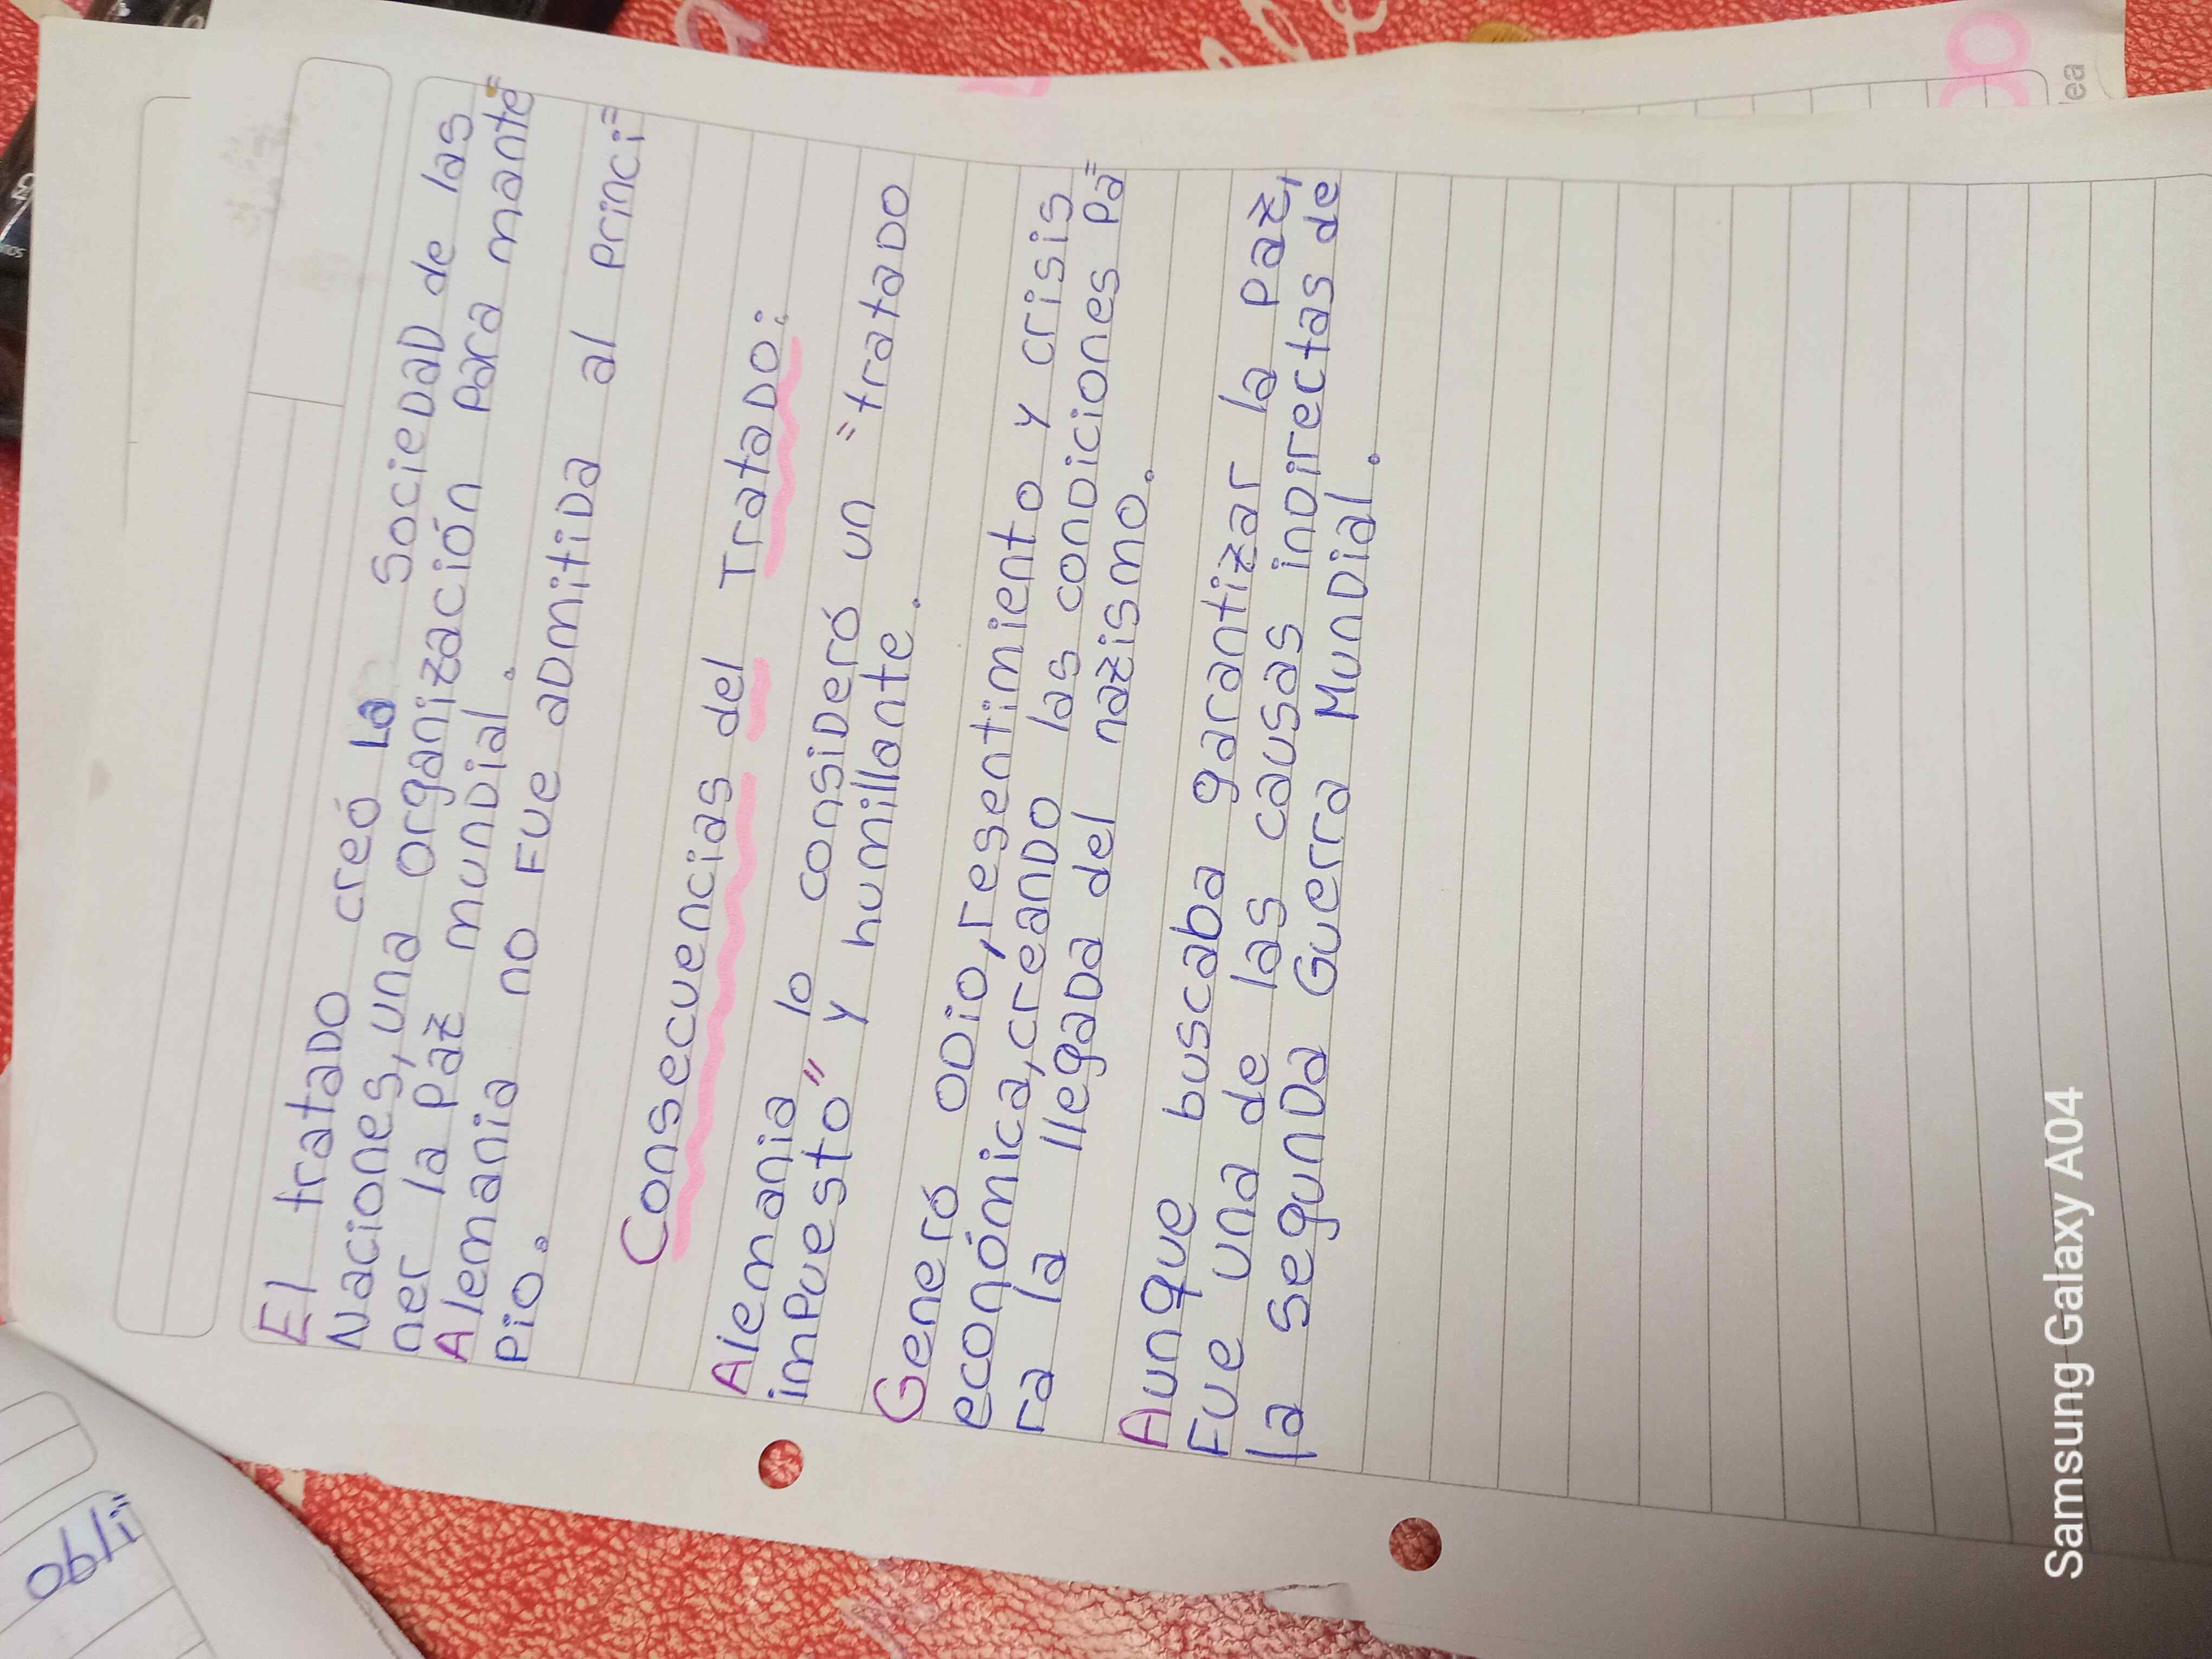 El tratado creó la Sociedad de las
Naciones, una organización para mante=
ner la paz mundial.
Alemania no fue admitida al princi=
pio.
Consecuencias del Tratado:
Alemania lo consideró un "tratado
impuesto" y humillante.
Generó odio, resentimiento y crisis
económica, creando las condiciones pa=
ra la llegada del nazismo.
Aunque buscaba garantizar la paz,
fue una de las causas indirectas de
la segunda Guerra Mundial.
Samsung Galaxy A04